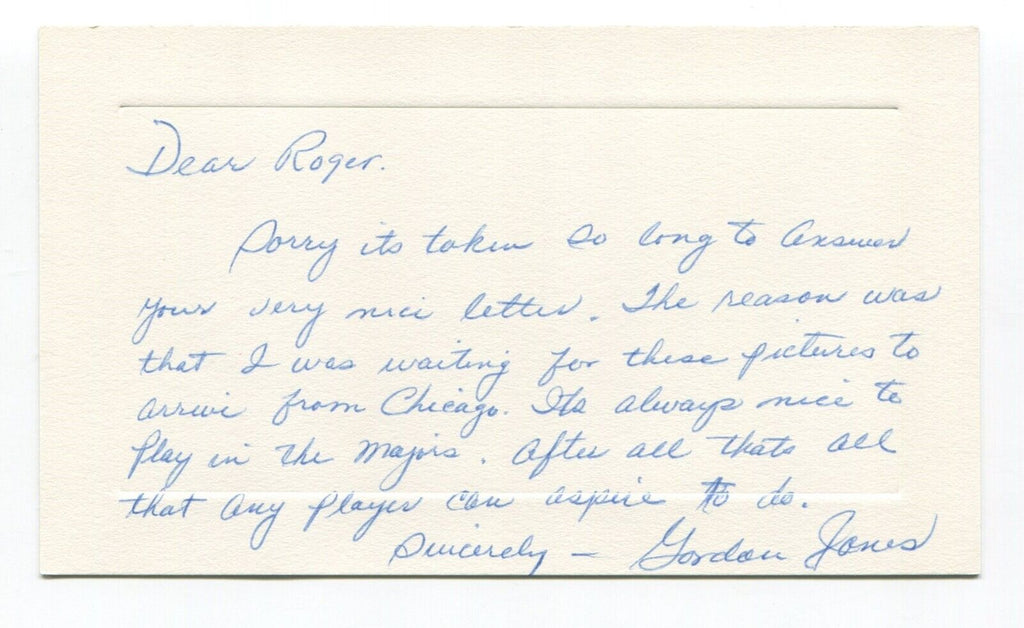 Dear Roger.
Sorry its taken so long to Answer
your very nice letter. The reason was
that I was waiting for these pictures to
arrive from Chicago. Its always nice to
play in the Majors. After all thats all
that any player can aspire to do.
Sincerely - Gordon Jones